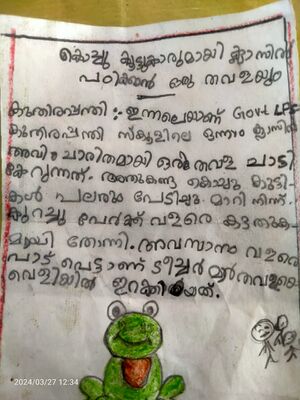 കൊച്ചു കൂട്ടുകാരുമായി ക്ലാസിൽ
പഠിക്കാൻ ഒരു തവളയും
കുതിരപ്പന്തി :- ഇന്നലെയാണ് Govt LPS
കുതിരപ്പന്തി സ്കൂളിലെ ഒന്നാം ക്ലാസിൽ
അവിചാരിതമായി ഒരു തവള ചാടി
കേറുന്നത്. അതുകണ്ട കൊച്ചു കുട്ടി-
കൾ പലരും പേടിച്ചു മാറി നിന്ന്.
കുറച്ചു പേർക്ക് വളരെ കൗതുക-
മായി തോന്നി. അവസാനം വളരെ
പാട് പെട്ടാണ് ടീച്ചർ തവളയെ
വെളിയിൽ ഇറക്കിയത്.
2024/03/27 12:34